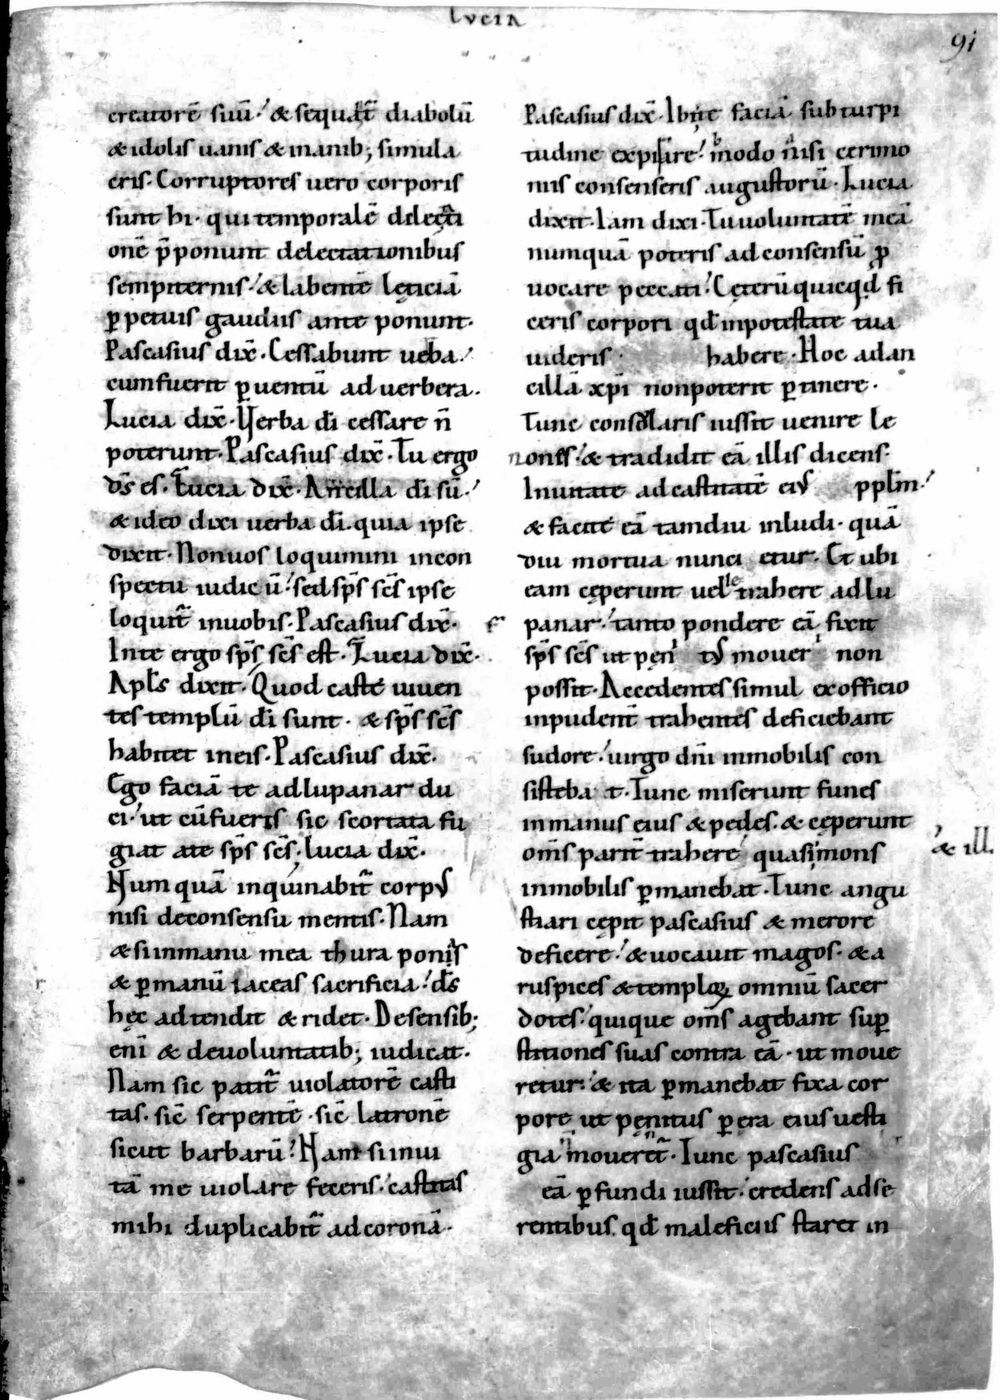 lucia
91
creatorē suū. & sequat̄ diabolū
& idolis uanis & manib; simula
cris. Corruptores uero corporis
sunt hi. qui temporalē delecta
onē p̄ponunt delectationibus
sempiternis. & labentē lęticiā
ꝑpetuis gaudiis ante ponunt.
Pascasius dix̄. Cessabunt ueba.
cum fuerit ꝑuentū ad uerbera.
Lucia dix̄. Verba dī cessare n̄
poterunt. Pascasius dix̄. Tu ergo
ds̄ es. Lucia dix̄. Ancilla dī sū.
& ideo dixi uerba dī. quia ipse
dixit. Non uos loquimini in con
spectu iudicū. sed sp̄s sc̄s ipse
loquit̄ in uobis. Pascasius dix̄.
In te ergo sp̄s sc̄s est. Lucia dix̄.
Apl̄s dixit. Quod caste uiuen
tes templū dī sunt. & sp̄s sc̄s
habitet in eis. Pascasius dix̄.
Ego faciā te ad lupanar du
ci. ut cū fueris sic scortata fu
giat a te sp̄s sc̄s. lucia dix̄.
Numquā inquinabit̄ corpus
nisi de consensu mentis. Nam
& si in manu mea thura ponis
& ꝑ manū faceas sacrificia. ds̄
hęc adtendit & ridet. De sensib;
enī & de uoluntatib; iudicat.
Nam sic patit̄ uiolatorē casti
tas. sic̄ serpentē. sic̄ latronē
sicut barbarū. Nam si inui
tā me uiolare feceris. castitas
mihi duplicabit̄ ad coronā.
Pascasius dix̄. Ibi te faciā sub turpi
tudine expirare. modo nisi cerimo
niis consenseris augustorū. Lucia
dixit. Iam dixi. Tu uoluntatē meā
numquā poteris ad consensū ꝓ
uocare peccati. Cęterū quicqd̄ fi
ceris corpori qd̄ in potestate tua
uideris habere. Hoc ad an
cillā xp̄i non poterit ꝑtinere.
Tunc consularis iussit uenire le
nones. & tradidit eā illis dicens.
Inuitate ad castitatē eius ppl̄m.
& facite eā tamdiu inludi. quā
diu mortua nunci etur. Et ubi
eam cęperunt uelle trahere ad lu
panar. tanto pondere eā fixit
sp̄s sc̄s ut peni tus mouer non
possit. Accedentes simul ex officio
inpudent̄ trahentes deficiebant
sudore. uirgo dn̄i inmobilis con
sisteba t. Tunc miserunt funes
in manus eius & pedes. & cęperunt
om̄s parit̄ trahere quasi mons
& ill.
inmobilis ꝑmanebat. Tunc angu
stiari cępit pascasius & merore
deficere. & uocauit magos. & a
ruspices & temploꝝ omniū sacer
dotes. quique om̄s agebant suꝑ
stitiones suas contra eā. ut moue
retur. & ita ꝑmanebat fixa cor
pore ut pęnitus ꝑ era eius uesti
gia mouerēt. Tunc pascasius
eā ꝑfundi iussit. credens adse
rentibus. qd̄ maleficiis staret in